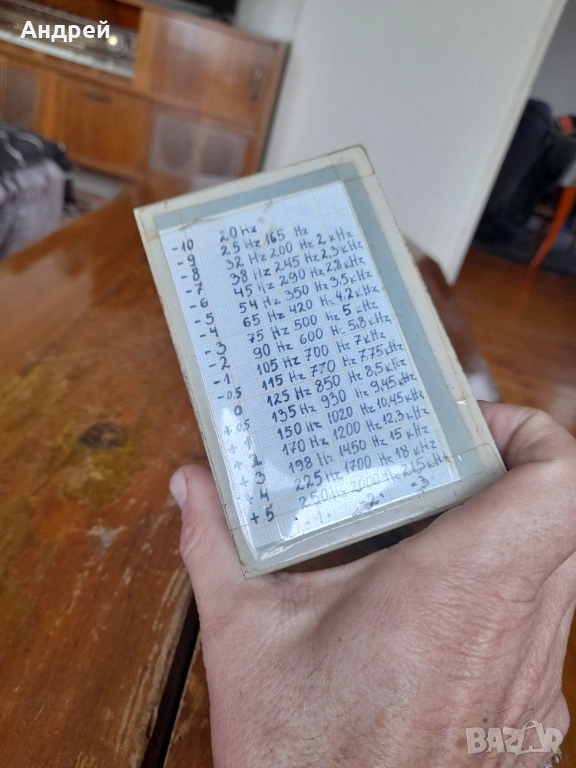 Андрей
-10 20 Hz
-9 25 Hz 165 Hz
-8 32 Hz 200 Hz 2 kHz
-7 38 Hz 245 Hz 2,3 kHz
-6 45 Hz 290 Hz 2,8 kHz
-5 54 Hz 350 Hz 3,5 kHz
-4 65 Hz 420 Hz 4,2 kHz
-3 75 Hz 500 Hz 5 kHz
-2 90 Hz 600 Hz 5,8 kHz
-1 105 Hz 700 Hz 7 kHz
-0,5 115 Hz 770 Hz 7,75 kHz
0 125 Hz 850 Hz 8,5 kHz
+0,5 135 Hz 930 Hz 9,45 kHz
+1 150 Hz 1020 Hz 10,45 kHz
+2 170 Hz 1200 Hz 12,3 kHz
+3 198 Hz 1450 Hz 15 kHz
+4 225 Hz 1700 Hz 18 kHz
+5 250 Hz 2000 Hz 21,5 kHz
-1- -2- -3-
BAZAR